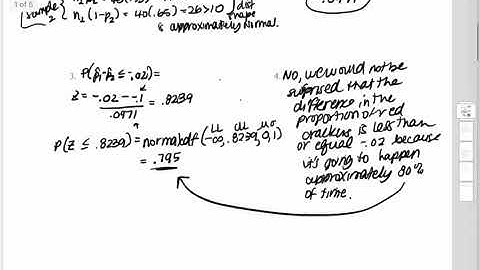 1 of 5
sample 2
n₂(1-p₂) = 40(.65) = 26 > 10
dist shape
is approximately Normal.
.0971
3. P(p̂₁-p̂₂ ≤ -.02) =
z = -.02 - -.1 / .0971 = .8239
P(Z ≤ .8239) = normalcdf(-∞, .8239, 0, 1)
LL UL μ σ
= .795
4. No, we would not be
suprised that the
difference in the
proportion of red
crackers is less than
or equal -.02 because
it's going to happen
approximately 80%
of time.